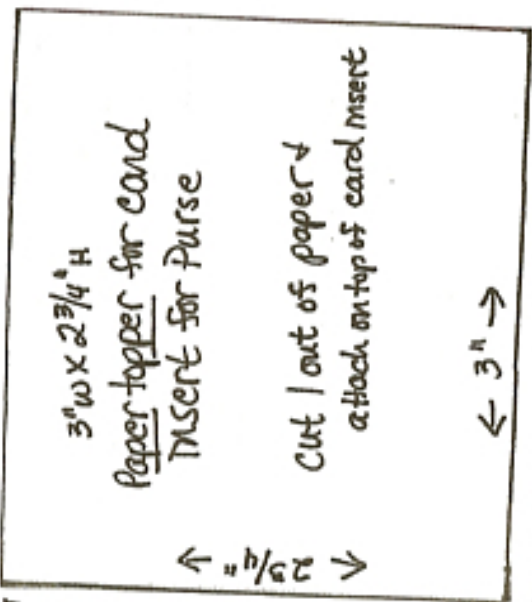 3"W X 2 3/4" H
Paper topper for card
Insert for Purse
Cut 1 out of paper &
attach on top of card insert
← 3" →
← 2 3/4" →